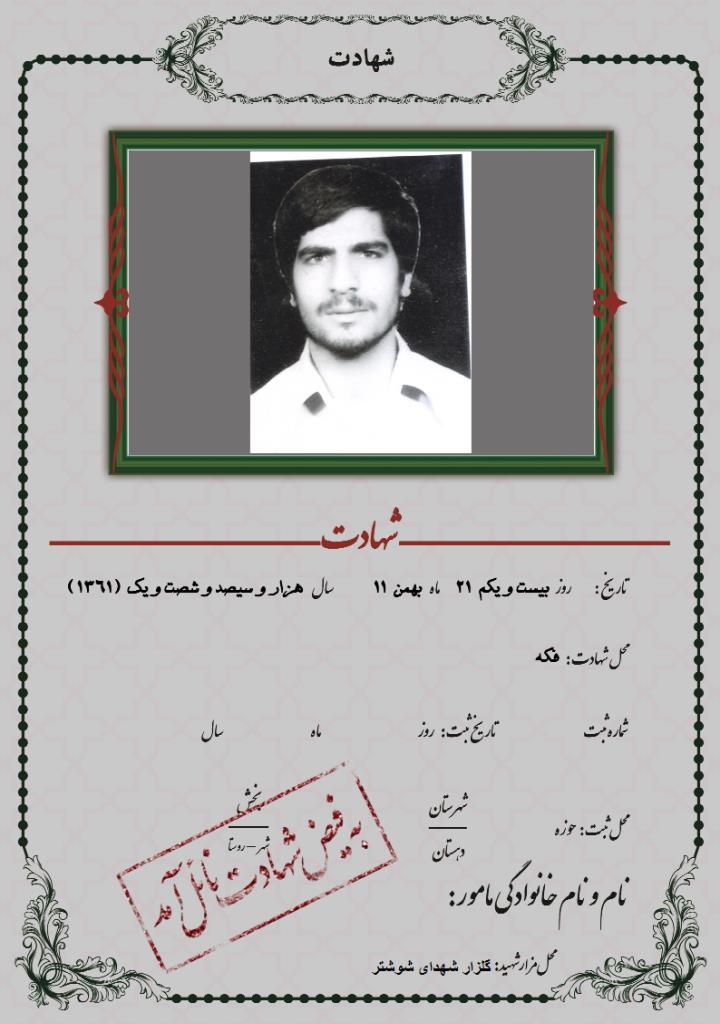 شهادت
شهادت
تاریخ: روز بیست و یکم ۲۱ ماه بهمن ۱۱ سال هزار و سیصد و شصت و یک (۱۳۶۱)
محل شهادت: فکه
شماره ثبت تاریخ ثبت: روز ماه سال
محل ثبت: حوزه شهرستان بخش
دهستان شهر-روستا
به فیض شهادت نائل آمد
نام و نام خانوادگی مامور:
محل مزار شهید: گلزار شهدای شوشتر